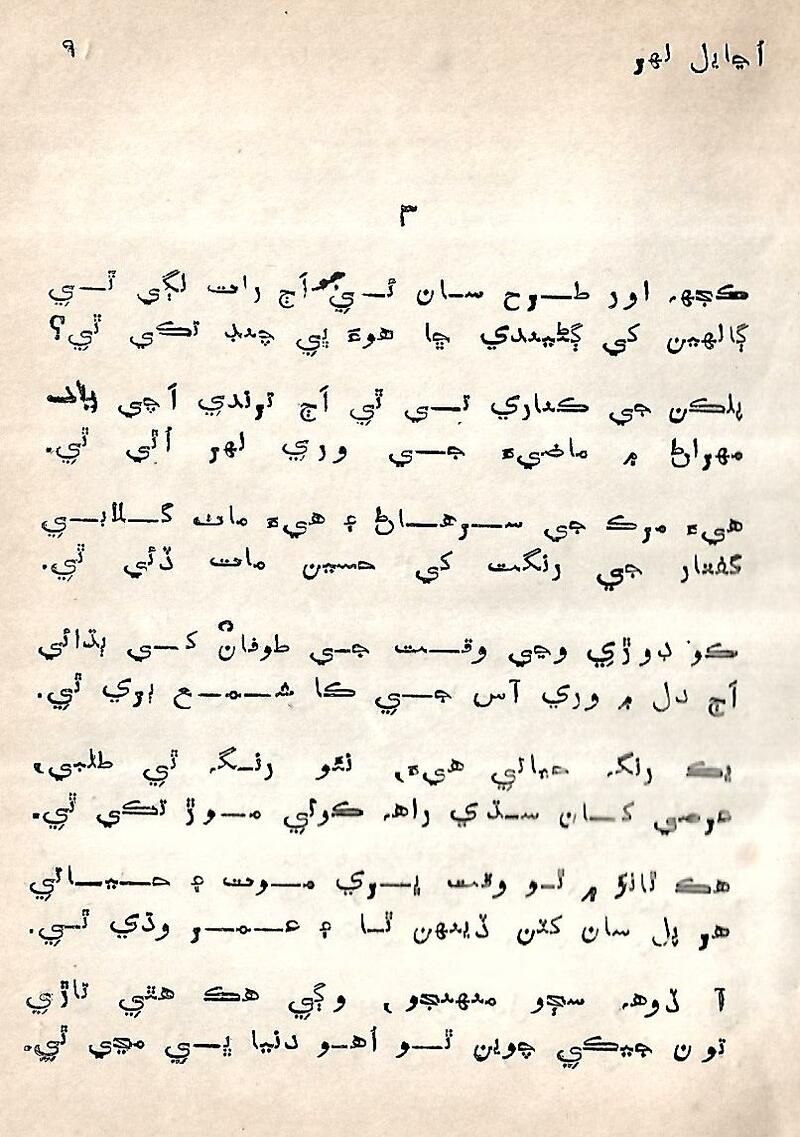 اُڇايل لهر
٩
٣
ڪجهه اور طرح سان ئي جو اَڄ رات لڳي ٿي
ڳالهين کي ڳڻيندي ڇا هوءَ ڀي چنڊ تڪي ٿي؟
پلڪن جي ڪناري تي ٿي اَڄ ترندي اَچي ياد
مهراڻ ۾ ماضيءَ جي وري لهر اُٿي ٿي.
هيءَ مرڪ جي سرهاڻ ۽ هيءَ مات گلابي
گفتار جي رنگت کي حسين مات ڏئي ٿي.
ڪو ڊوڙي وڃي وقت جي طوفان کي ٻڌائي
اَڄ دل ۾ وري آس جي ڪا شمع ٻري ٿي.
يڪ رنگ حياتي هيءَ، نئو رنگ ٿي طلبي،
عرصي کان سڌي راهه ڪوئي موڙ تڪي ٿي.
هڪ تانڙ ۾ ٿو وقت ڀري موت ۽ حياتي
هر پل سان کٽن ڏينهن ٿا ۽ عمر وڌي ٿي.
آ ڏوهه سڄو منهنجو، وڳي هڪ هٿي تاڙي
تون جيڪي چوين ٿو اُهو دنيا ڀي مڃي ٿي.